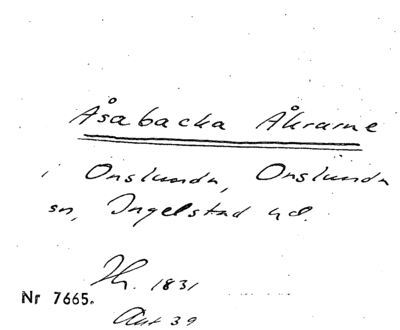 Åsabacka Åkrarne
i Onslunda, Onslunda
sn, Ingelstad hd.
1831
Nr 7665.
39